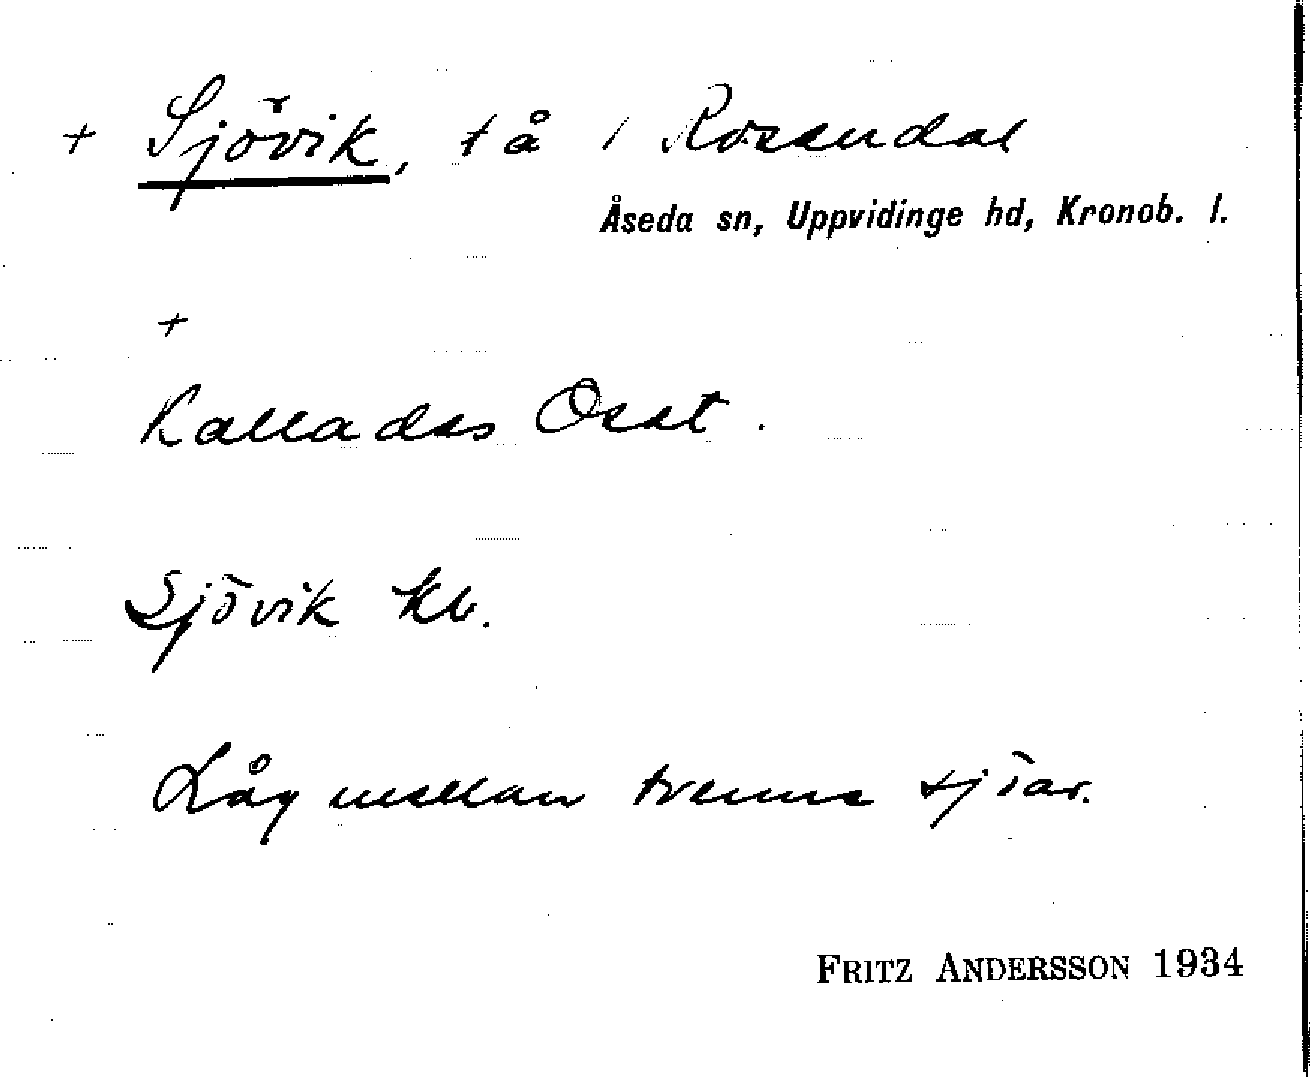 + Sjövik, tå / Rosendal
Åseda sn, Uppvidinge hd, Kronob. l.
+
Kallades Ocat.
Sjövik kb.
Låg mellan trenne sjöar.
FRITZ ANDERSSON 1934